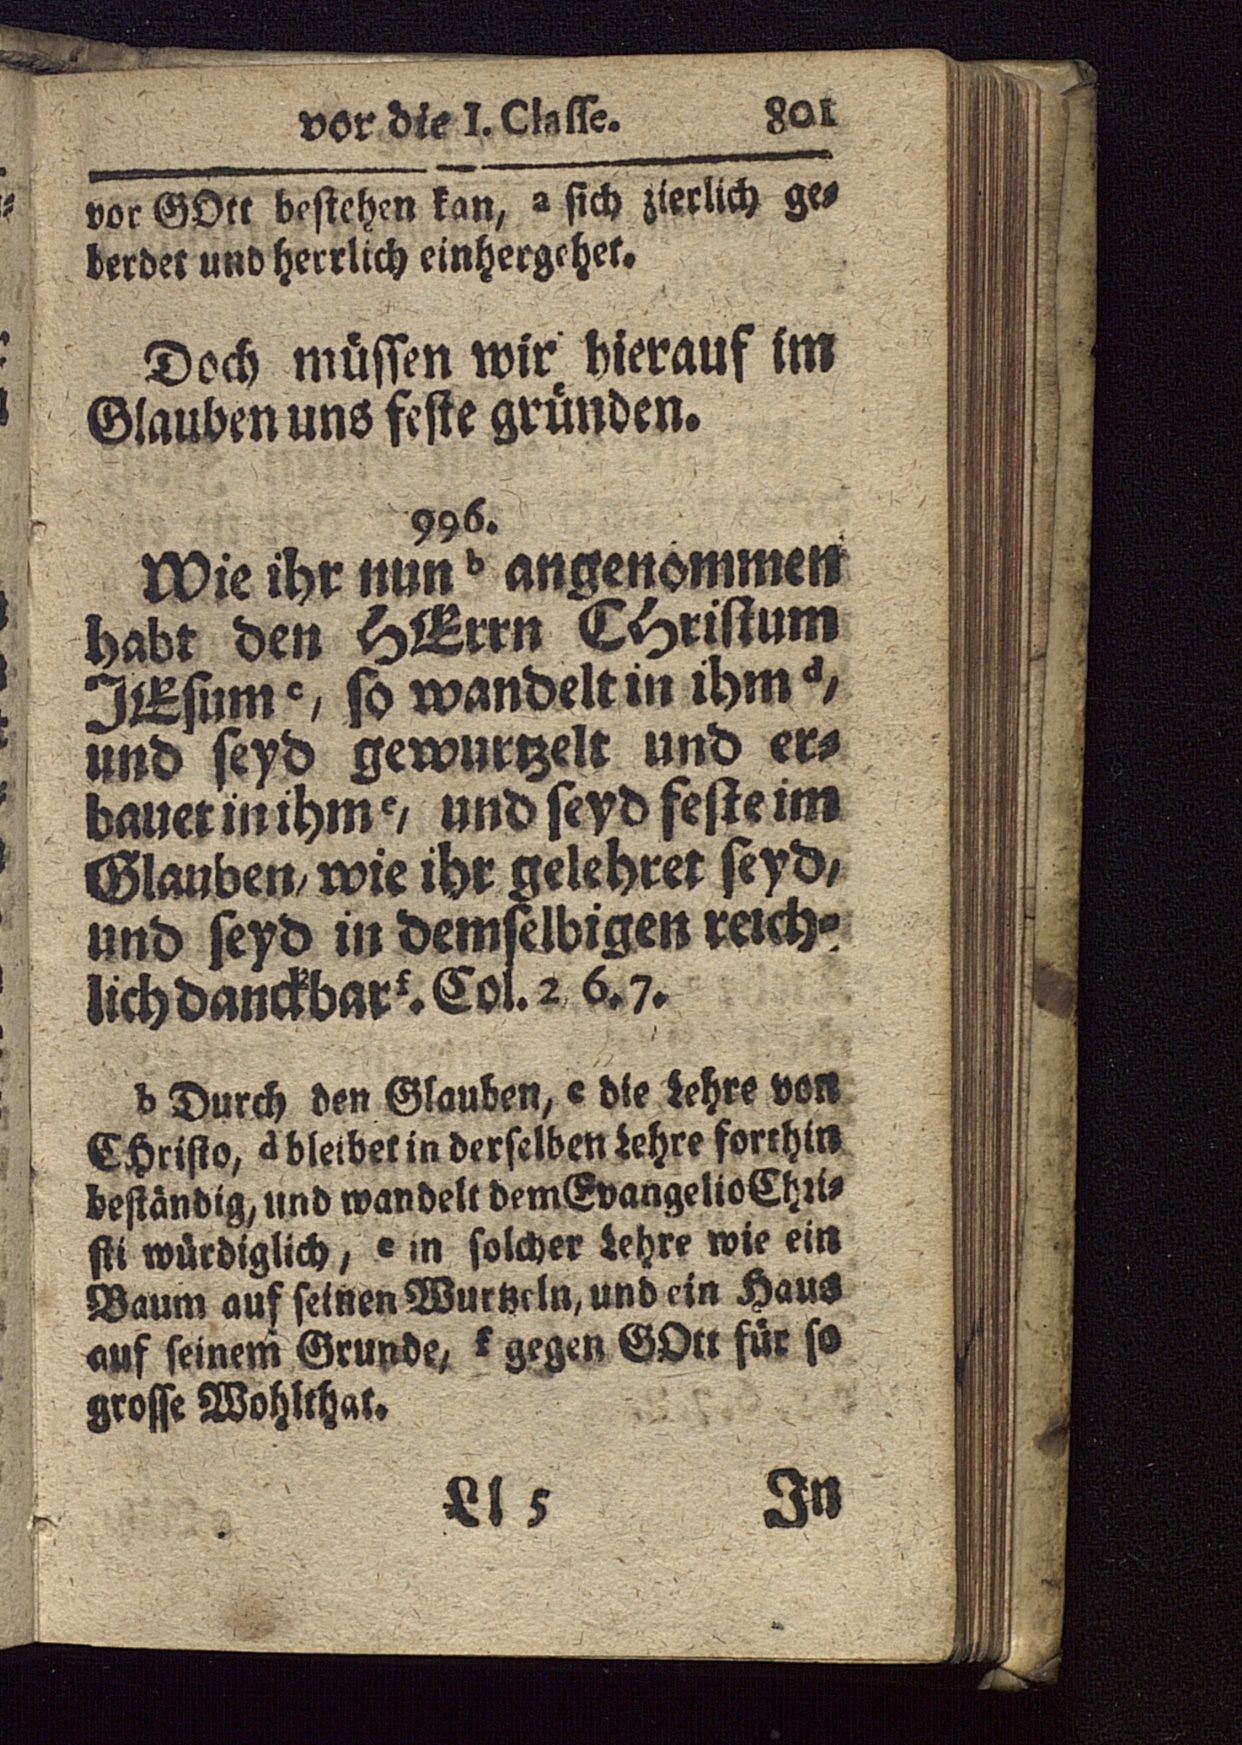 vor die I. Classe. 801
vor GOtt bestehen kan, a sich zierlich ge-
berdet und herrlich einhergehet.
Doch müssen wir hierauf im
Glauben uns feste gründen.
996.
Wie ihr nun b angenommen
habt den HErrn CHristum
JEsum c, so wandelt in ihm d,
und seyd gewurtzelt und er-
bauet in ihm e, und seyd feste im
Glauben, wie ihr gelehret seyd,
und seyd in demselbigen reich-
lich danckbar f. Col. 2 6. 7.
b Durch den Glauben, c die Lehre von
CHristo, d bleibet in derselben Lehre forthin
beständig, und wandelt dem Evangelio Chri-
sti würdiglich, e in solcher Lehre wie ein
Baum auf seinen Wurtzeln, und ein Haus
auf seinem Grunde, f gegen GOtt für so
grosse Wohlthat.
Ll 5 In